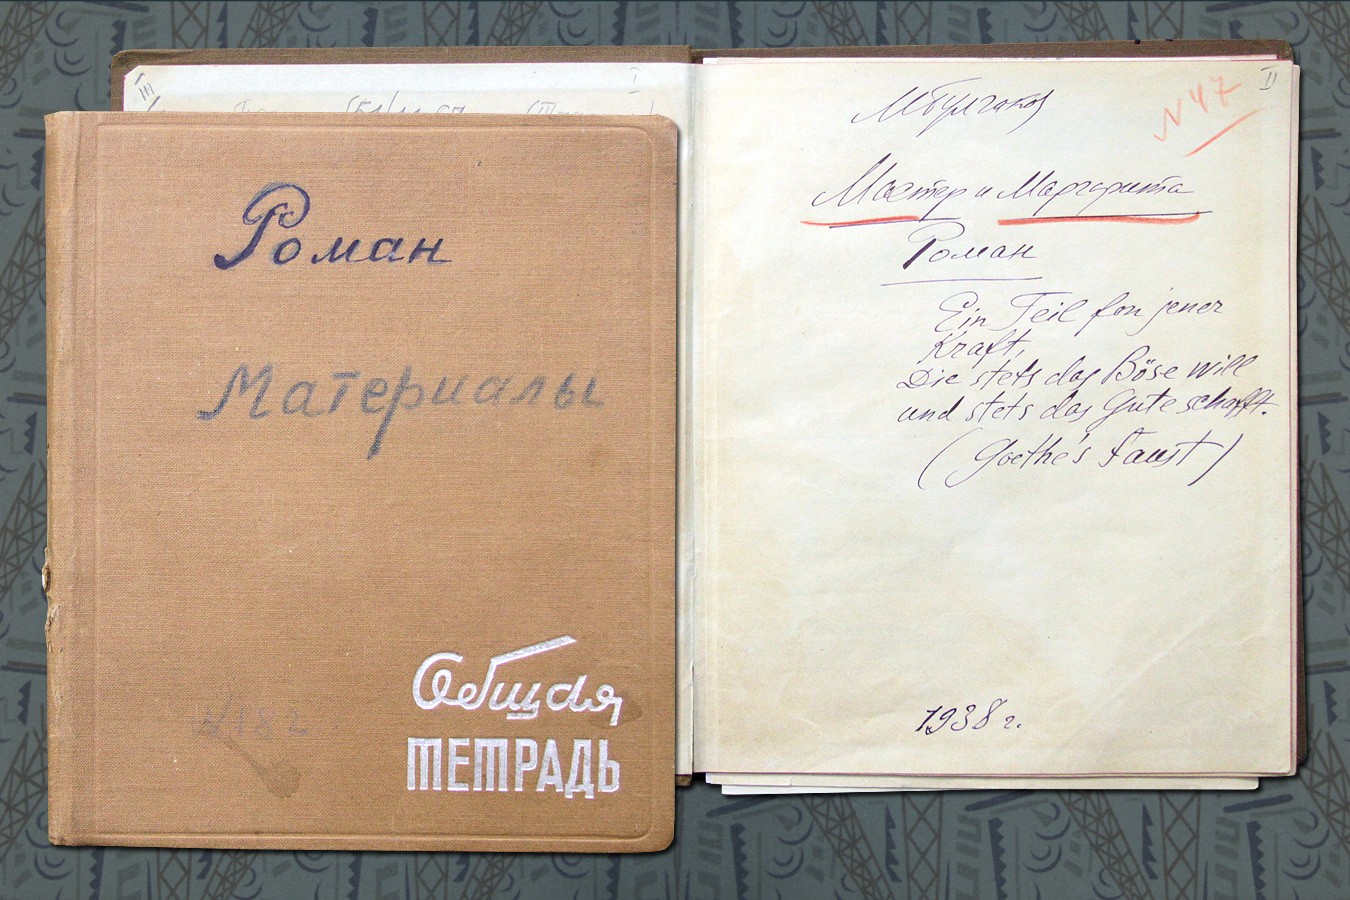 Роман
Материалы
Общая
ТЕТРАДЬ
III
I
II
N 47
МБулгаков
Мастер и Маргарита
Роман
Ein Teil fon jener
Kraft,
Die stets das Böse will
und stets das Gute schafft.
(Goethe's Faust)
1938 г.